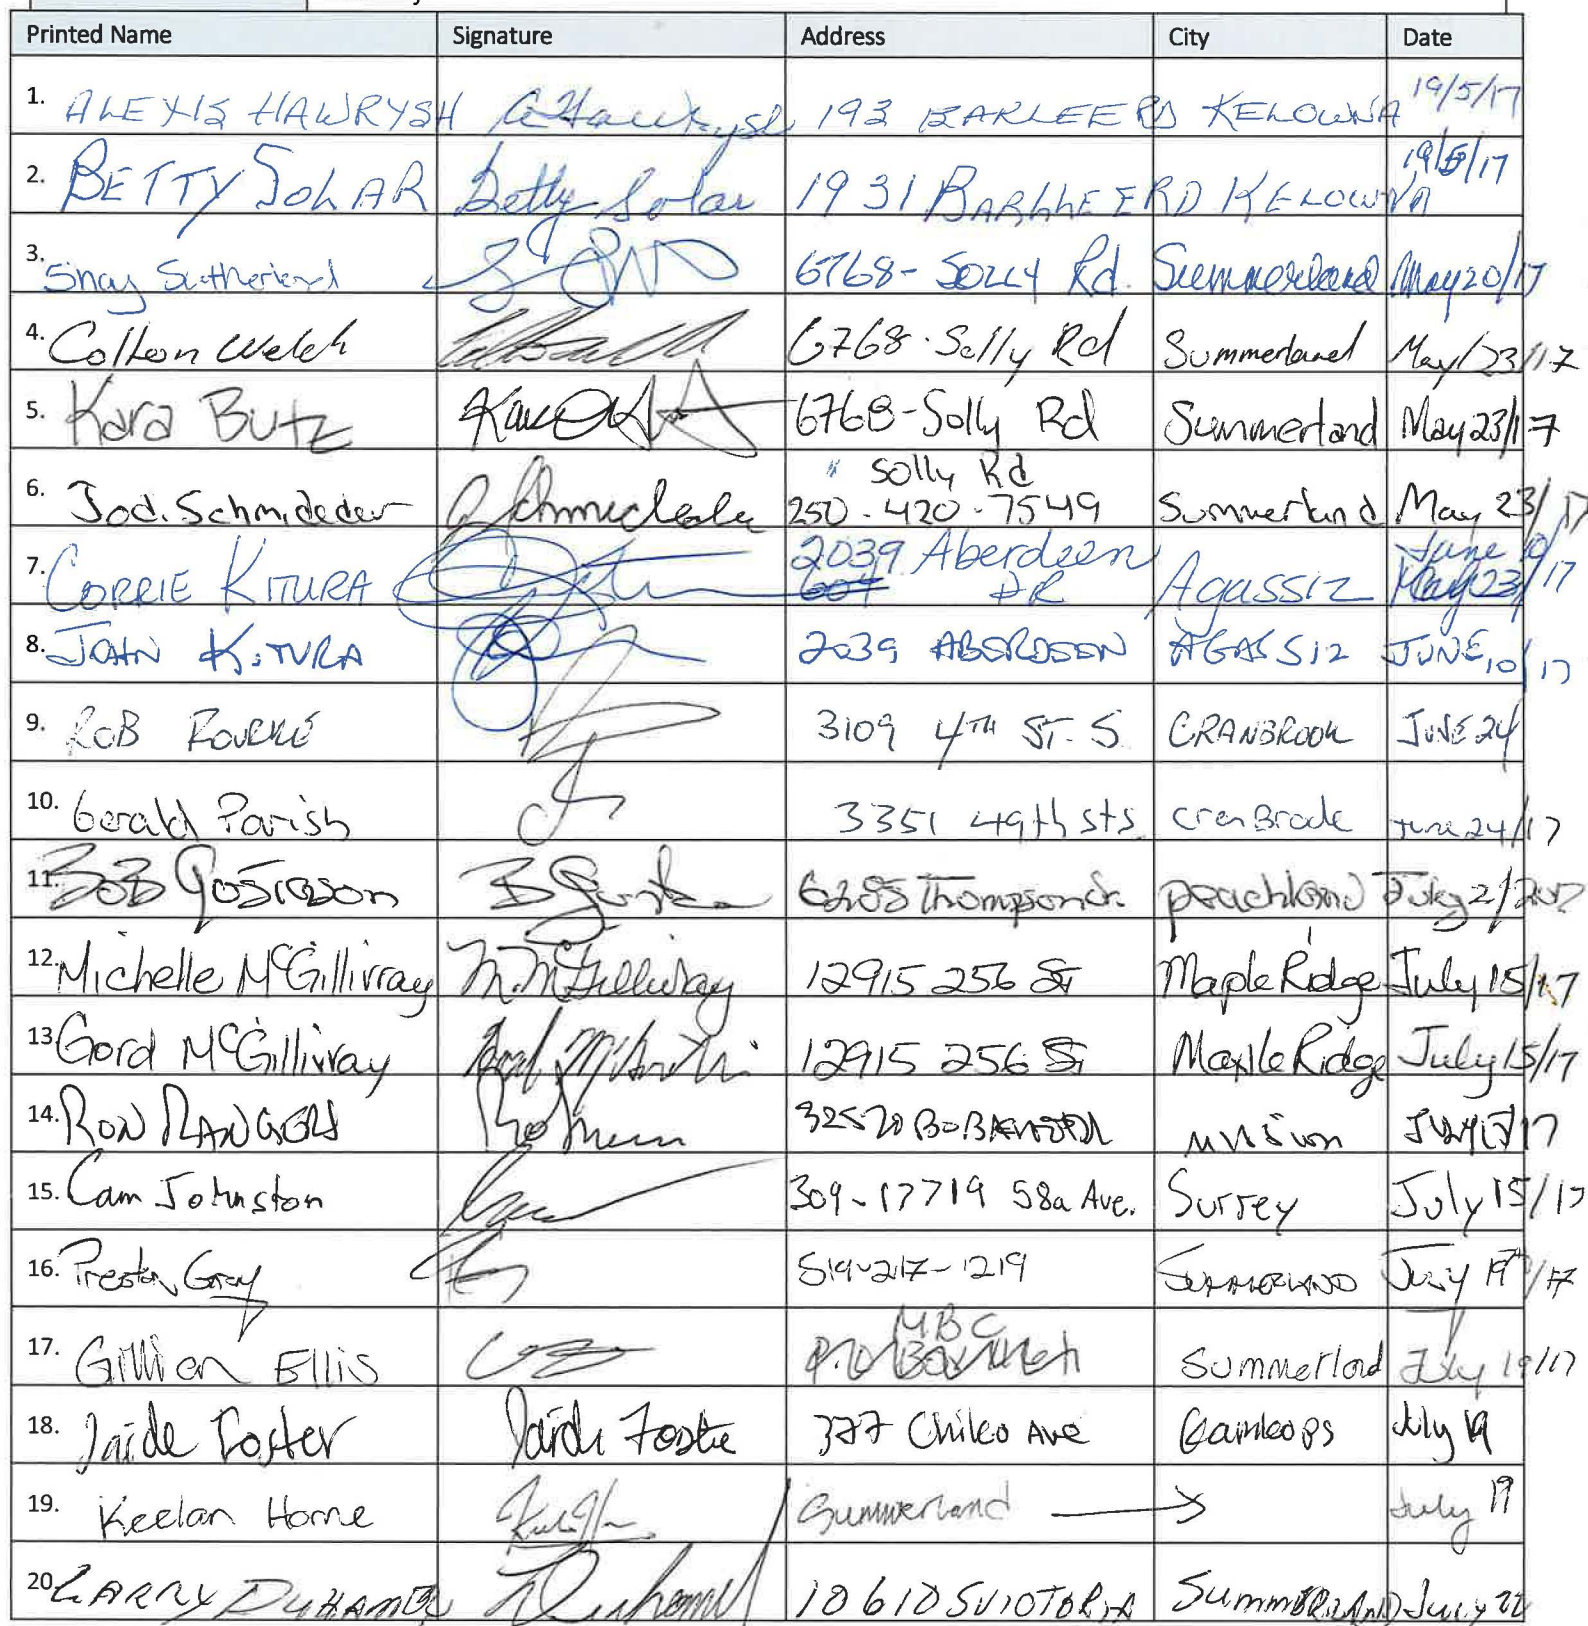 Printed Name Signature Address City Date
1. ALEXIS HAWRYSH A Hawrysh 193 BARLEE RD KELOWNA 19/5/17
2. BETTY SOLAR Betty Solar 1931 BARLLEE RD KELOWNA 19/5/17
3. Shay Sutherland 6768- SOLLY Rd. Summerland May 20/17
4. Colton Welch 6768 - Solly Rd Summerland May/23/17
5. Kara Butz 6768-Solly Rd Summerland May 23/17
6. Jodi Schmideder J Schmideder " Solly Rd Summerland May 23/17
250-420-7549
7. CORRIE KITURA 2039 Aberdeen Agassiz June 10/17
604 DR May 23
8. JOHN KITURA 2039 ABERDEEN AGASSIZ JUNE 10/17
9. ROB ROURKE 3109 4TH ST. S. CRANBROOK JUNE 24
10. Gerald Parish 3351 49th st s cranBrook June 24/17
11. BOB 6205 Thompson dr. peachland July 2/2017
12. Michelle McGillivray M. McGillivray 12915 256 St Maple Ridge July 15/17
13. Gord McGillivray 12915 256 St Maple Ridge July 15/17
14. RON 32570 Mission July 17
15. Cam Johnston 309-17719 58a Ave. Surrey July 15/17
16. Preston Gray 519-217-1219 SUMMERLAND July 19/17
17. Gillian Ellis MBC Summerland July 19/17
18. Jaide Foster Jaide Foster 377 Chilco Ave Kamloops July 19
19. Keelan Horne Summerland → July 19
20. LARRY DUHAMEL Duhamel 10610 S VICTORIA SUMMERLAND July 22